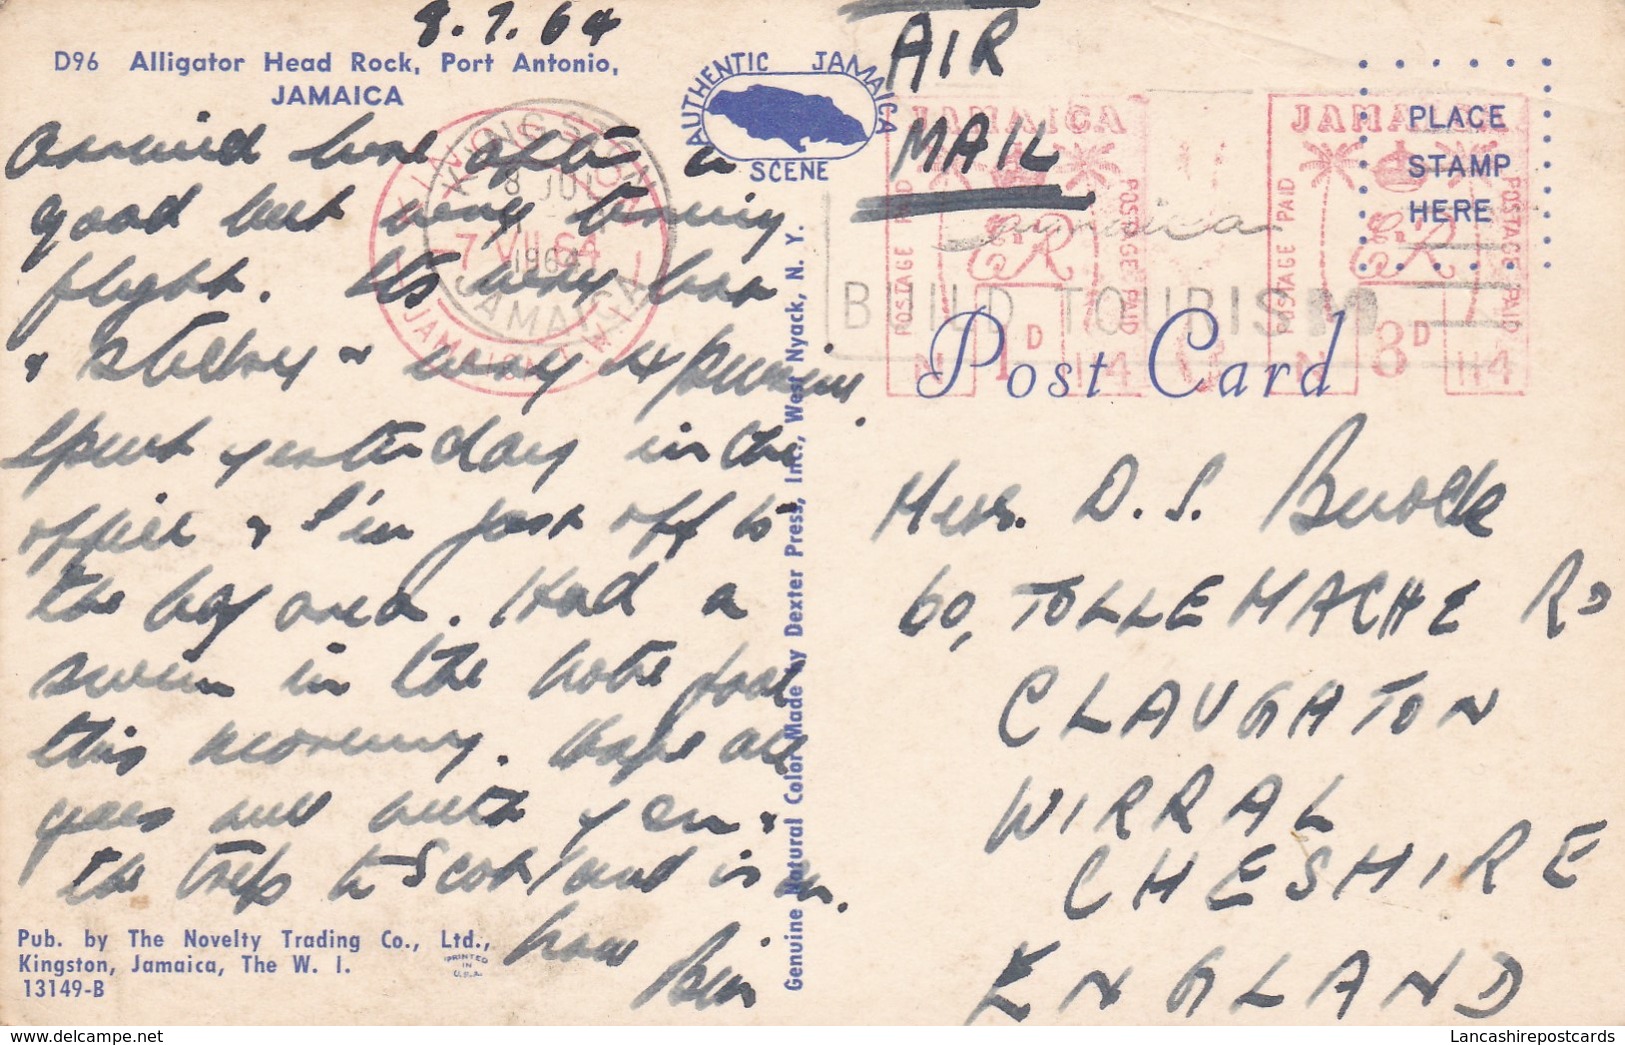 8.7.64
D96 Alligator Head Rock, Port Antonio,
JAMAICA
AUTHENTIC JAMAICA
SCENE
AIR
MAIL
PLACE
STAMP
HERE
Arrived here after a
good but very tiring
flight. Its very hot
& sticky & very expensive
Spent yesterday in the
office & I'm just off to
the bay area. Had a
swim in the hotel pool
this morning. Hope all
goes well with you &
the trip to Scotland is on.
love
KINGSTON
8 JUL
1964
JAMAICA
KINGSTON
7 VII 64
JAMAICA B.W.I.
JAMAICA
POSTAGE PAID
POSTAGE PAID
E R
1D
N 114
JAMAICA
POSTAGE PAID
POSTAGE PAID
E R
8D
N 114
Jamaica
BUILD TOURISM
Post Card
D. S.
60, TOLLEMACHE RD
CLAUGHTON
WIRRAL
CHESHIRE
ENGLAND
Genuine Natural Color Made by Dexter Press, Inc., West Nyack, N. Y.
Pub. by The Novelty Trading Co., Ltd.,
Kingston, Jamaica, The W. I.
13149-B
PRINTED
IN
U.S.A.
Lancashirepostcards